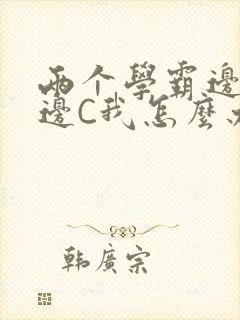 兩个學霸邊
邊C我怎麼
韩廣宗